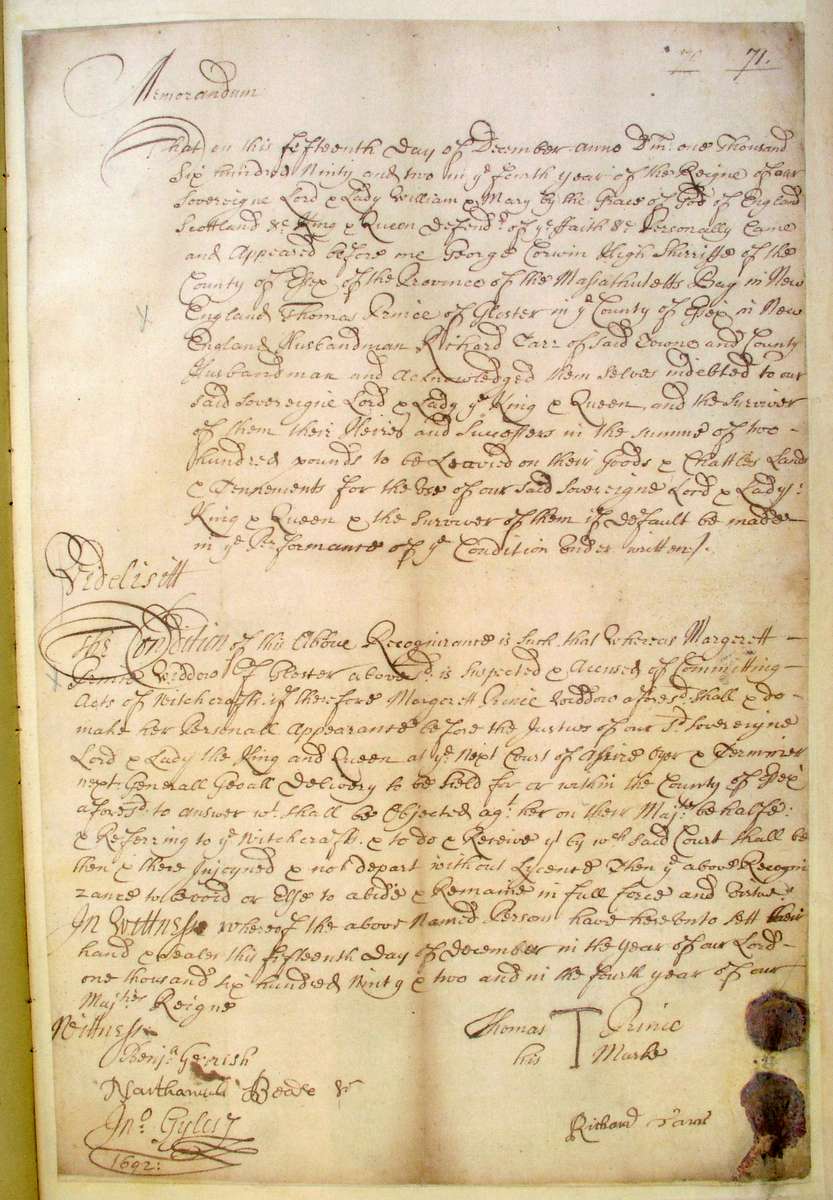 71.
Memorandum
That on this fifteenth Day of December anno Dm: one Thousand
Six hundred Ninty and two in ye fourth year of the Reigne of our
Sovereigne Lord & Lady William & Mary by the Grace of God of England
Scottland &c King & Queen Defendrs of ye ffaith &c Personally Came
and Appeared before me George Corwin High Sherriffe of the
County of Essex of the Province of the Masathusetts Bay in New
England Thomas Prince of Gloster in ye County of Essex in New
England Husbandman Richard Tarr of said Towne and County
Husbandman and Acknowledged them selves indebted to our
said Sovereigne Lord & Lady ye King & Queen and the Surviver
of them their Heires and Successers in the summe of two
hundred pounds to be Leavied on their Goods & Chattles Lands
& Tennements for the Use of our said Sovereigne Lord & Lady ye
King & Queen & the Surviver of them if default be made
in ye Performance of ye Condition Under written/.
Videlisitt
The Condition of this Above Recognizance is such that Whereas Margerett
Prince Widdow of Gloster abovesd: is suspected & Accused of Committing
Acts of Witchcraft if therefore Margerett Prince Widdow aforesd: shall & do
make her Personall Appearance before the Justices of our sd Sovereigne
Lord & Lady the King and Queen at ye next Court of Assize Oyer & Terminer
next Generall Goall Delivery to be held for or within the County of Essex
aforesd: to answer wt shall be Objected agt her on their Majtes behalfe
& Referring to ye Witchcraft & to do & Receive yt by wch said Court shall be
then & there Injoyned & not depart without Lycence Then ye above Recogni
zance to be void or Else to abide & Remaine in full force and Virtue
In Wittness whereof the above Named Person have hereunto sett their
hand & seales this fifteenth Day of December in the year of our Lord
one thousand six hundred Ninty & two and in the fourth year of our
Majties Reigne
Wittness
Thomas T Prince
his Marke
Benja Gerrish
Nathaniel Beadle
Jno: Gyles
Richard Tarr
1692: